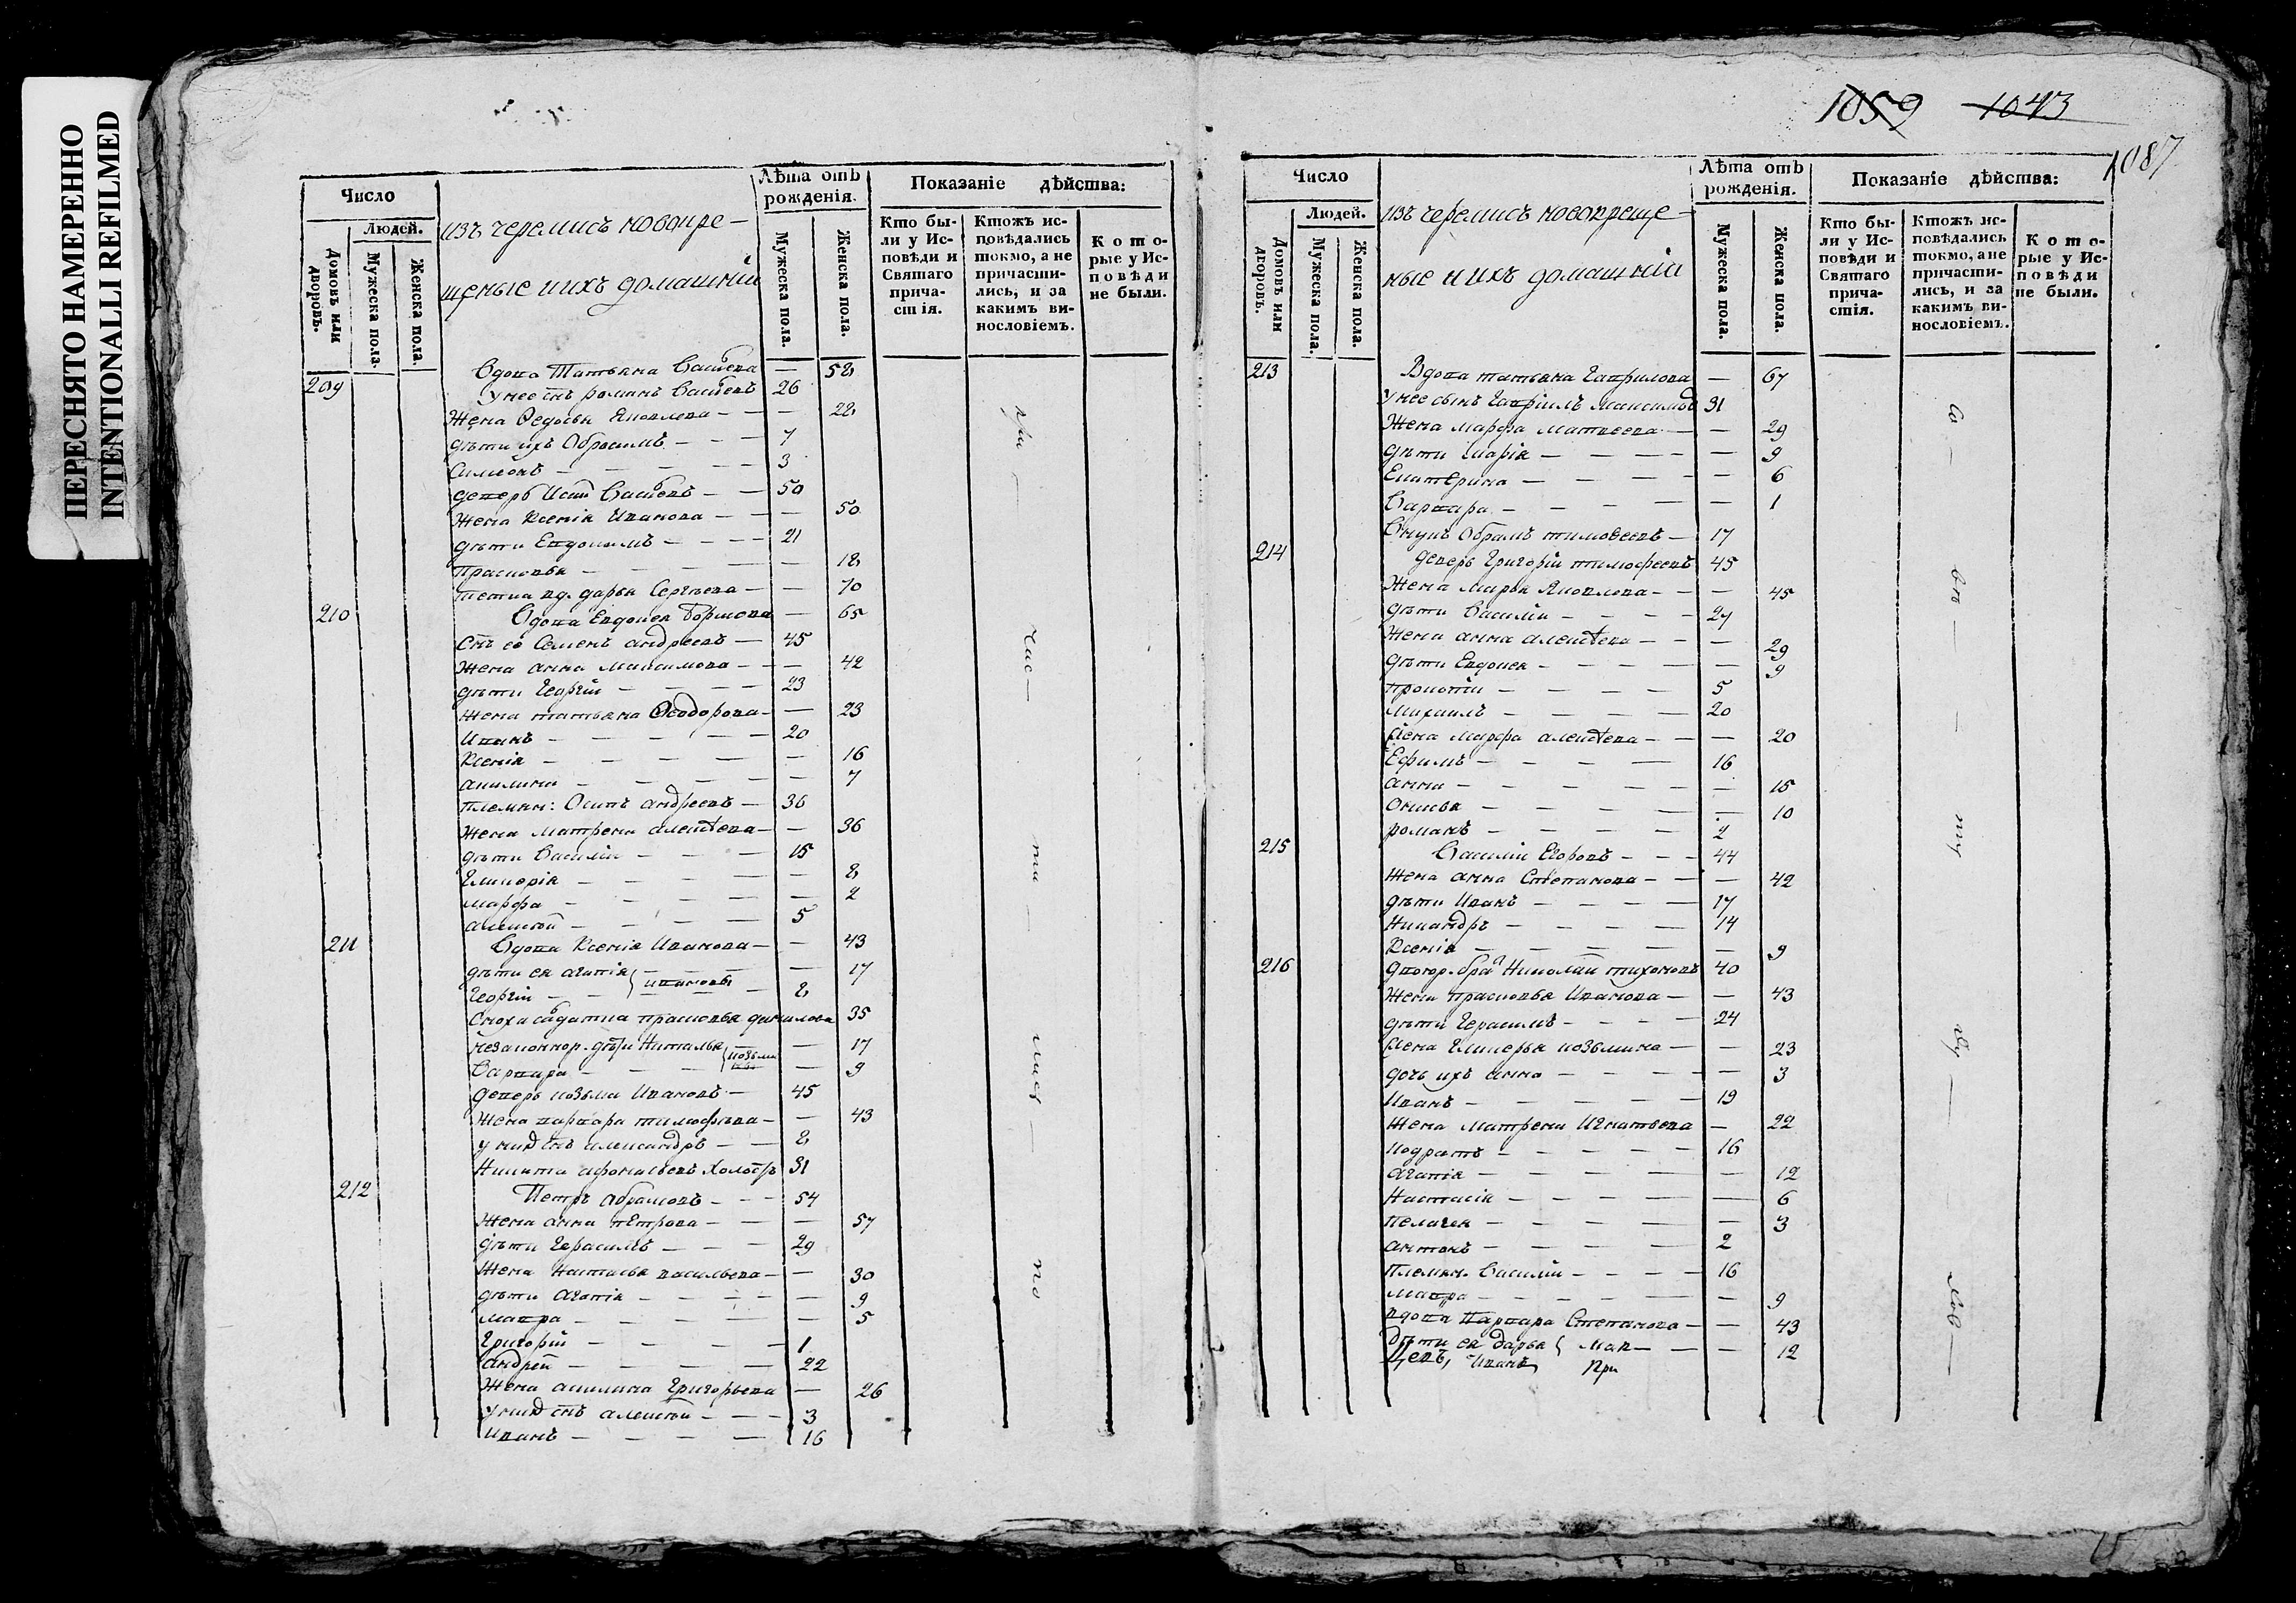 ПЕРЕСНЯТО НАМЕРЕННО
INTENTIONALLI REFILMED
Число
Людей.
Домовъ или дворовъ.
Мужеска пола.
Женска пола.
изъ черемисъ новокре-
щеные и ихъ домашніи
Лѣта отъ рожденія.
Мужеска пола.
Женска пола.
Показаніе дѣйства:
Кто бы-
ли у Ис-
повѣди и
Святаго
прича-
стія.
Ктожъ ис-
повѣдались
токмо, а не
причасти-
лись, и за
какимъ ви-
нословіемъ.
Кото-
рые у Ис-
повѣди
не были.
209 Вдова Татьяна — 58
у нее снъ романъ 26
Жена Ѳедосья Яковлева — — — 22
дѣти ихъ Обросимъ — — — 7
Симеонъ — — — 3
деверь — — 50
Жена Ксенія Иванова — — — 50
дѣти Евдокимъ — — — 21
Прасковья — — — 18
тетка вд. дарья Сергѣева — — 70
210 Вдова Евдокея — 65
Снъ ее Семенъ андреевъ — 45
Жена анна Максимова — — — 42
дѣти Георгій — — — 23
Жена татьяна Ѳеодорова — — 23
Иванъ — — — 20
Ксенія — — — 16
акилина — — — 7
племян: Осипъ андреевъ — 36
Жена матрена алексѣева — — 36
дѣти Василіи — — — 15
Гликерія — — — 8
марфа — — — 2
алексѣй — — — 5
211 Вдова Ксенія Иванова — — 43
дѣти ея агапія } ивановы — 17
Георгіи — — 8
Сноха солдатка прасковья данилова 35
незаконнор. дѣти Наталья — 17
Варвара — — — 9
деверь козьма Ивановъ — 45
Жена варвара тимофѣева — — 43
у нихъ снъ александръ — — 8
Никита афонасьевъ холостъ 31
212 Петръ абрамовъ — — — 54
Жена анна пЕтрова — — — 57
дѣти Герасимъ — — — 29
Жена Настасья васильева — — 30
дѣти Агапія — — — 9
мавра — — — 5
Григорій — — — 1
андрей — — — 22
Жена акилина Григорьева — 26
у нихъ снъ алексѣй — — — 3
Иванъ — — — 16
при — час — ти — лис — по
1059 1043
1087
Число
Людей.
Домовъ или дворовъ.
Мужеска пола.
Женска пола.
изъ черемисъ новокреще-
ные и ихъ домашніи
Лѣта отъ рожденія.
Мужеска пола.
Женска пола.
Показаніе дѣйства:
Кто бы-
ли у Ис-
повѣди и
Святаго
прича-
стія.
Ктожъ ис-
повѣдались
токмо, а не
причасти-
лись, и за
какимъ ви-
нословіемъ.
Кото-
рые у Ис-
повѣди
не были.
213 Вдова татьяна Гаврилова — 67
у нее сынъ Гавріилъ максимовъ 31
Жена марфа матвеева — — 29
дѣти Марія — — — 9
Екатерина — — — 6
Варвара — — — 1
Внукъ Обрамъ тимоѳеевъ — 17
214 деверь Григорій тимофеевъ 45
Жена марья Яковлева — — — 45
дѣти Василіи — — — 27
Жена анна алексѣева — — — 29
дѣти Евдокея — — — 9
прокопіи — — — 5
михаилъ — — — 20
Жена марфа алексѣева — — — 20
Ефимъ — — — 16
анна — — — 15
— — — 10
романъ — — — 2
215 Василіи Егоровъ — — — 44
Жена анна Степанова — — — 42
дѣти Иванъ — — — 17
Никандръ — — — 14
Ксенія — — — 9
216 двоюр. братъ Николай тихоновъ 40
Жена прасковья Иванова — — 43
дѣти Герасимъ — — — 24
Жена Гликерья козьмина — — 23
дочь ихъ анна — — — 3
Иванъ — — — 19
Жена матрена Игнатьева — 22
кодратъ — — — 16
агапія — — — 12
Настасія — — — 6
пелагея — — — 3
антонъ — — — 2
племян. Василіи — — — 16
мавра — — — 9
вдова варвара Степанова — — 43
дѣти ея дарья — — 12